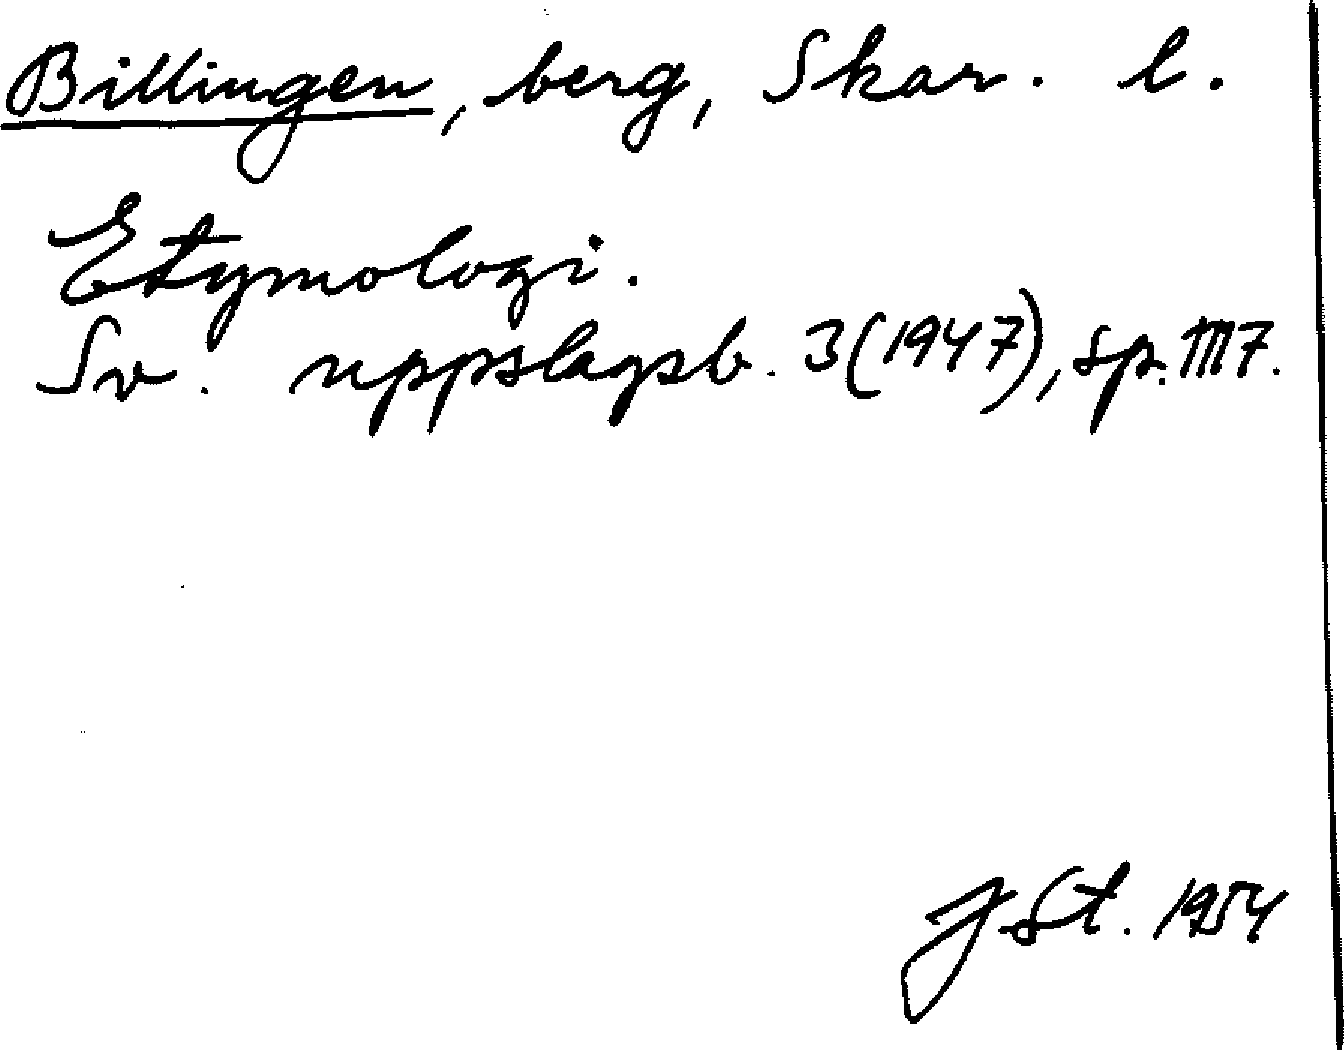 Billingen, berg, Skar. l.
Etymologi.
Sv. uppslagsb. 3(1947), sp. 1117.
JSt. 1954